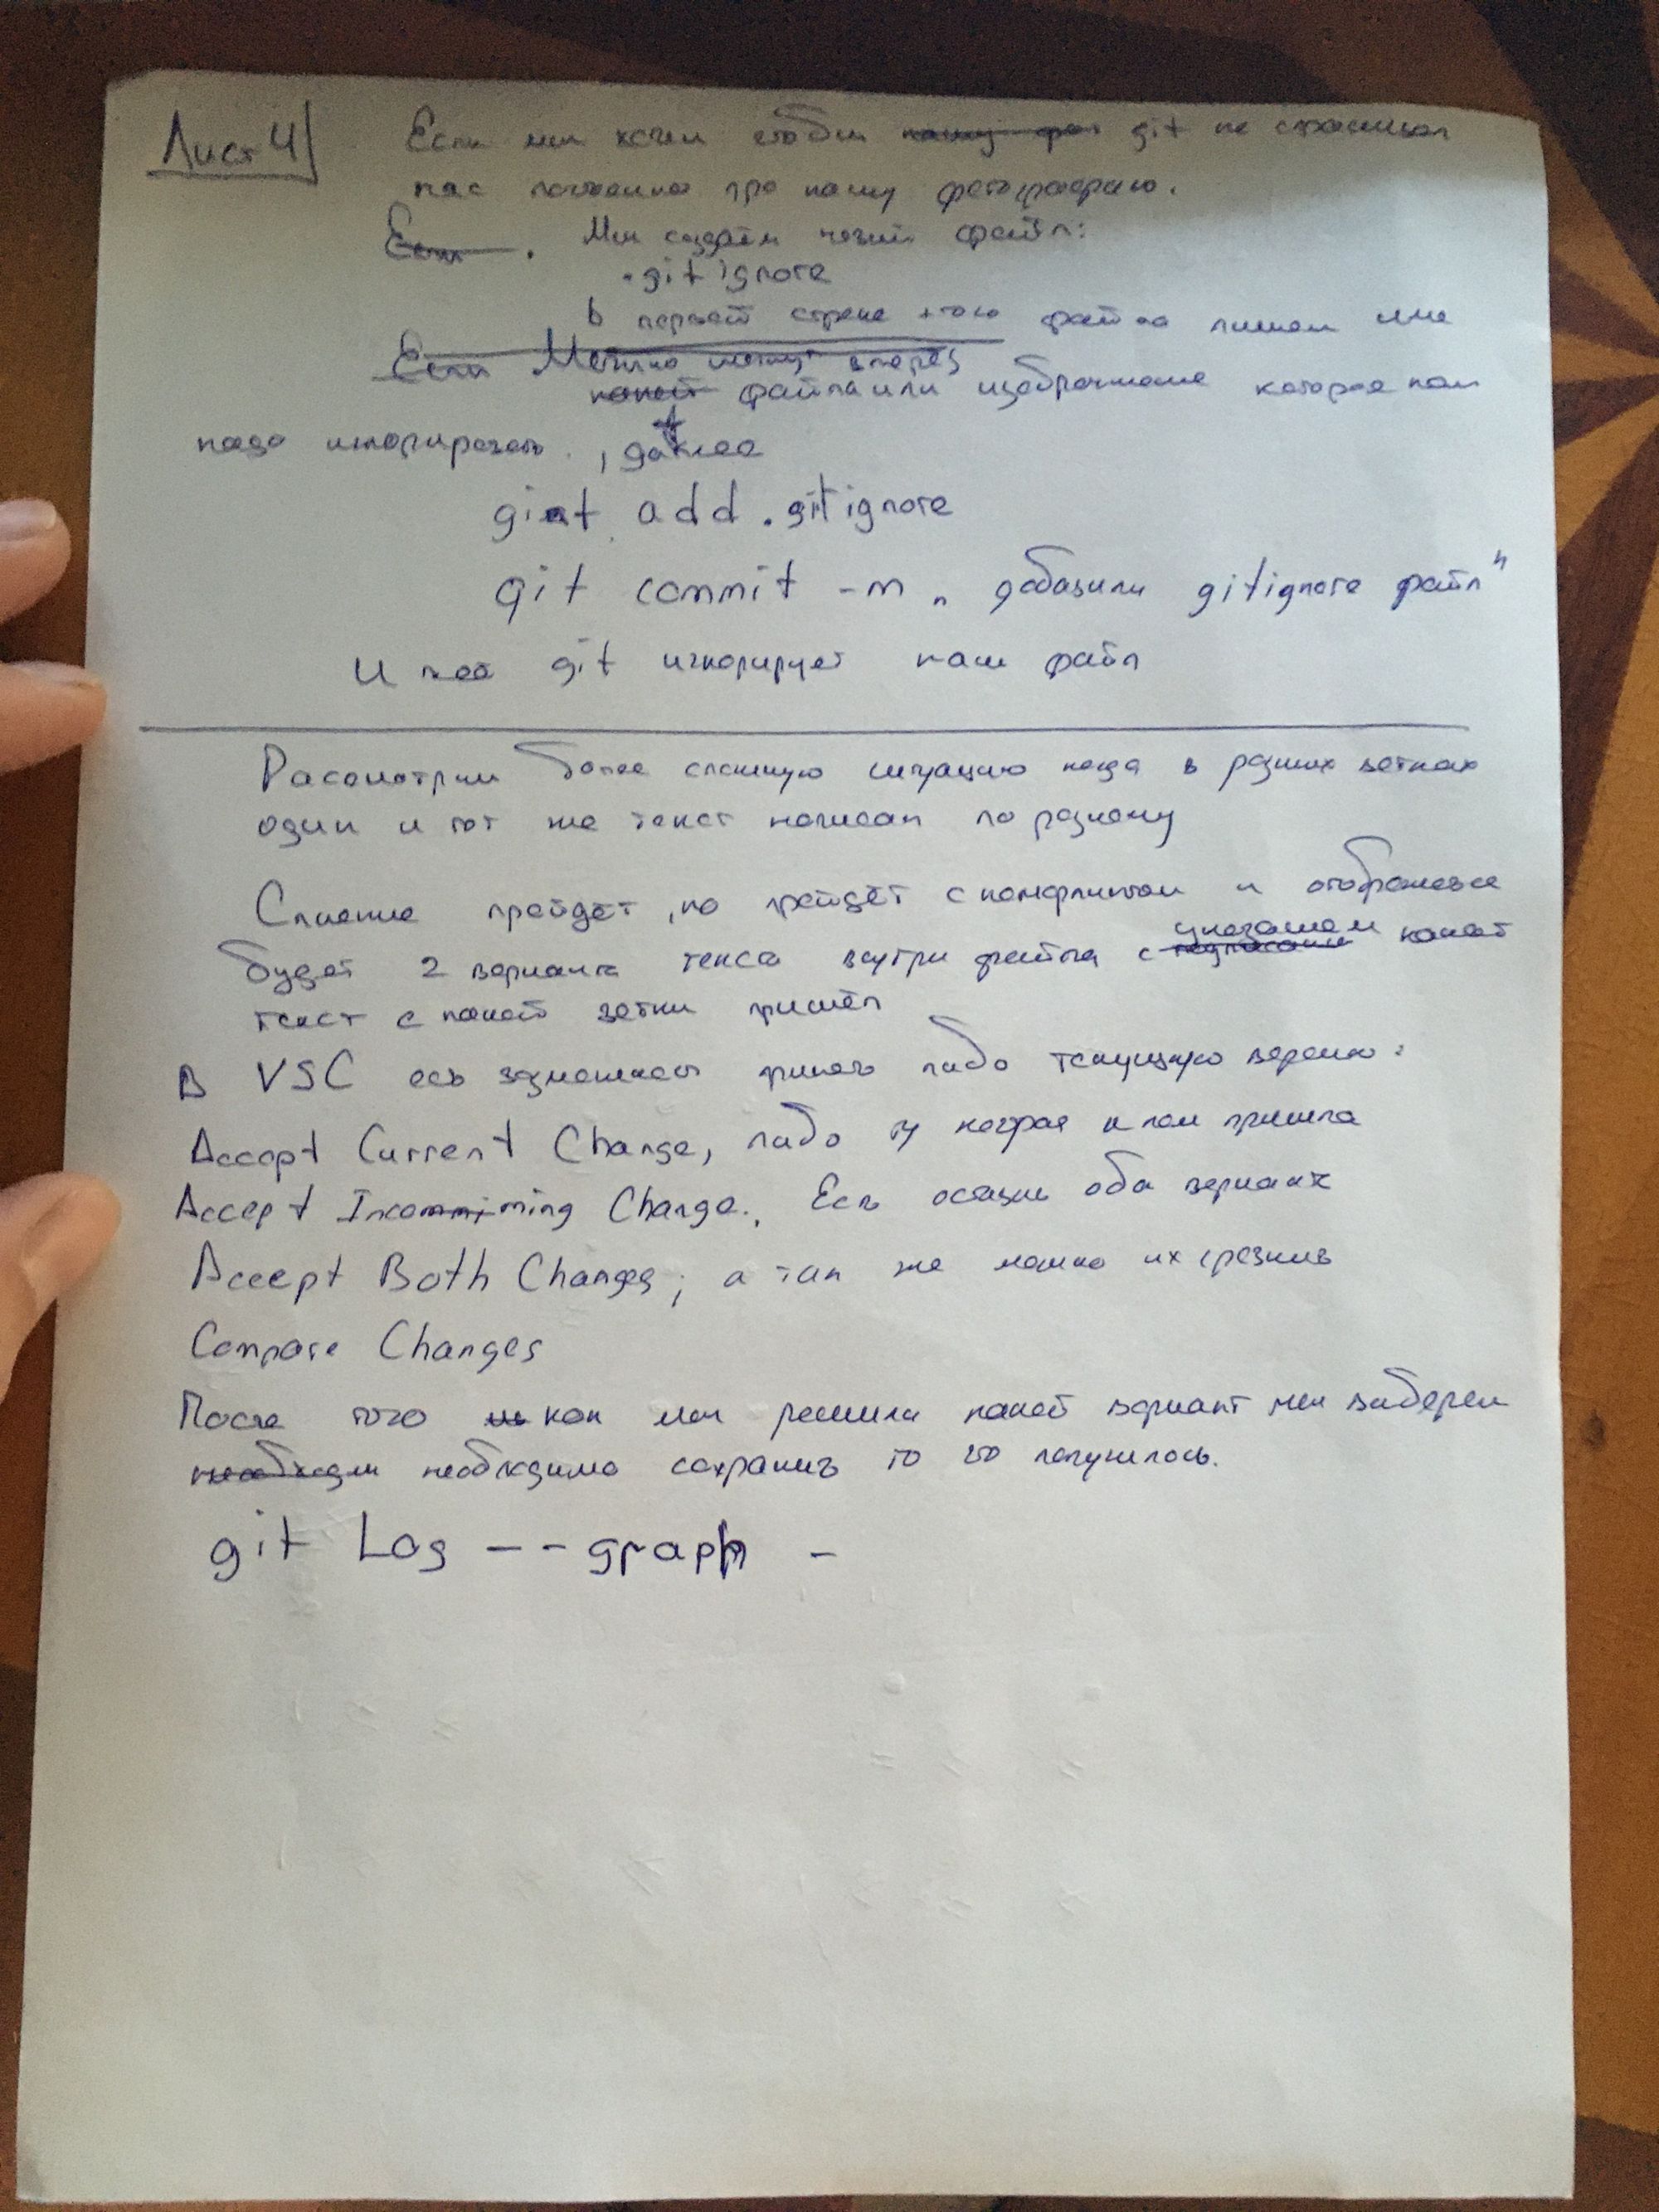 Лист 4
Если мы хотим чтобы нашу фот git не спрашивал
нас постоянно про нашу фотографию.
Если . Мы создаём новый файл:
.gitignore
В первой строке этого файла пишем имя
Если Метка может вперёд
какой файла или изображение которое нам
надо игнорировать , далее
git add .gitignore
git commit -m „ добавили gitignore файл "
И всё git игнорирует наш файл
Расмотрим более сложную ситуацию когда в разных ветках
один и тот же текст написан по разному
Слияние пройдёт , но пройдёт с конфликтом и отображатся
указанием
будет 2 варианта текса внутри файла с подписами какой
текст с какой ветки пришёл
В VSC есь возможность принять либо текущую версию :
Accept Current Change, либо ту которая к нам пришла
Accept Incomming Change., Есь остащи оба варианта
Accept Both Changes; а так же можно их сравнить
Compare Changes
После того как мы решили какой вариант мы выберем
необходим необходимо сохранить то что получилось.
git Log --graph -